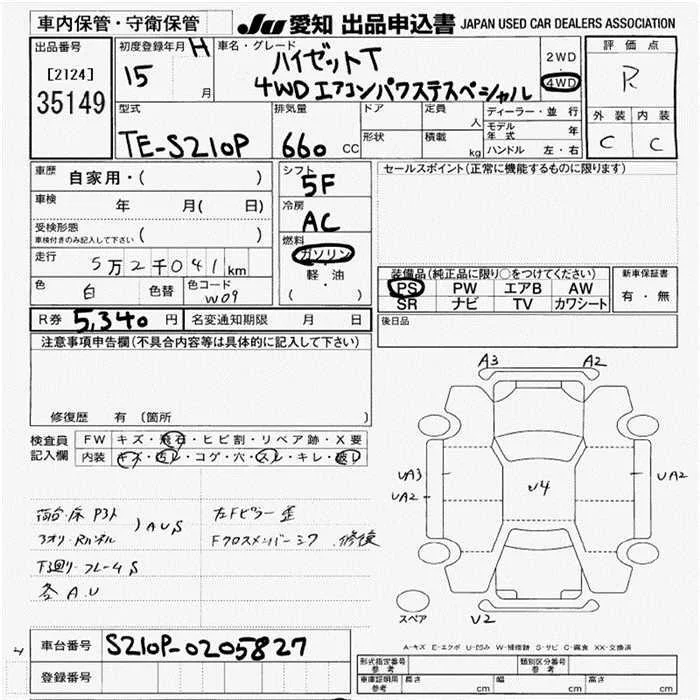 車内保管・守衛保管
JU 愛知 出品申込書 JAPAN USED CAR DEALERS ASSOCIATION
出品番号
[2124]
35149
初度登録年月 H
15
月
車名・グレード
ハイゼットT
4WD エアコンパワステスペシャル
2WD
4WD
評価点
R
外装 内装
C C
型式
TE-S210P
排気量
660 CC
ドア
形状
定員 人
積載 kg
ディーラー・並行
モデル年式 年
ハンドル 左・右
車歴 自家用・( )
車検 年 月( 日)
受検形態
車検付きのみ記入して下さい ( )
走行 5万2千041km
色 白 色替 色コード W09
シフト
5F
冷房
AC
燃料
ガソリン
軽・油
( )
セールスポイント(正常に機能するものに限ります)
装備品(純正品に限り〇をつけてください)
PS PW エアB AW
SR ナビ TV カワシート
新車保証書
有・無
R券 5,340 円 名変通知期限 月 日
後日品
注意事項申告欄(不具合内容等は具体的に記入して下さい)
修復歴 有 (箇所 )
検査員
記入欄
FW キズ・飛石・ヒビ割・リペア跡・X要
内装 キズ・汚レ・コゲ・穴・スレ・キレ・破レ
荷台・床 P3ト
3オリ・Rパネル
) A U S
下廻り・フレームS
各 A.U
左Fピラー歪
Fクロスメンバーミク 修復
A3 A2
UA3
UA2
U4
UA2
スペア
U2
A-キズ E-エクボ U-凹み W-補修跡 S-サビ C-腐食 XX-交換済
車台番号 S210P-0205827
登録番号
形式指定番号 参考
類別区分番号 参考
車庫証明用 参考 長さ cm 幅 cm 高さ cm